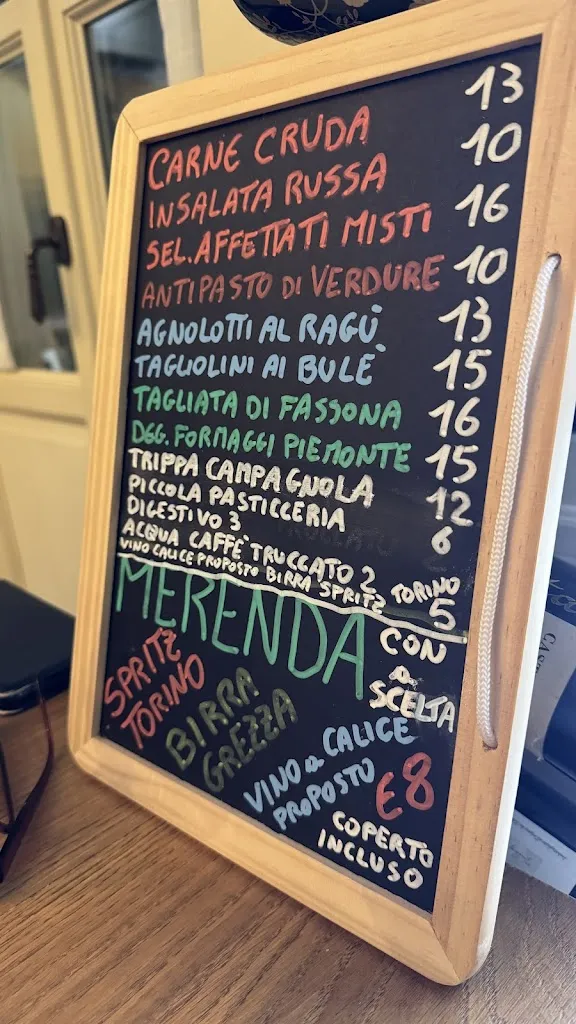 CARNE CRUDA 13
INSALATA RUSSA 10
SEL. AFFETTATI MISTI 16
ANTIPASTO DI VERDURE 10
AGNOLOTTI AL RAGÙ 13
TAGLIOLINI AI BULÈ 15
TAGLIATA DI FASSONA 16
DGG. FORMAGGI PIEMONTE 15
TRIPPA CAMPAGNOLA 12
PICCOLA PASTICCERIA 6
DIGESTIVO 3
ACQUA CAFFÈ TRUCCATO 2
VINO CALICE PROPOSTO BIRRA SPRITZ TORINO 5
MERENDA
CON
a
SCELTA
SPRITZ
TORINO
BIRRA
GREZZA
VINO a CALICE
PROPOSTO
€8
COPERTO
INCLUSO